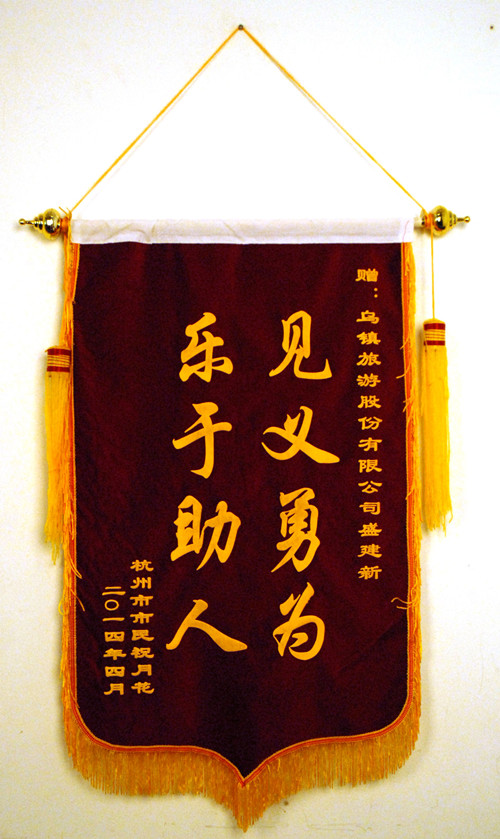 赠：乌镇旅游股份有限公司盛建新
见义勇为
乐于助人
杭州市市民祝月花
二〇一四年四月